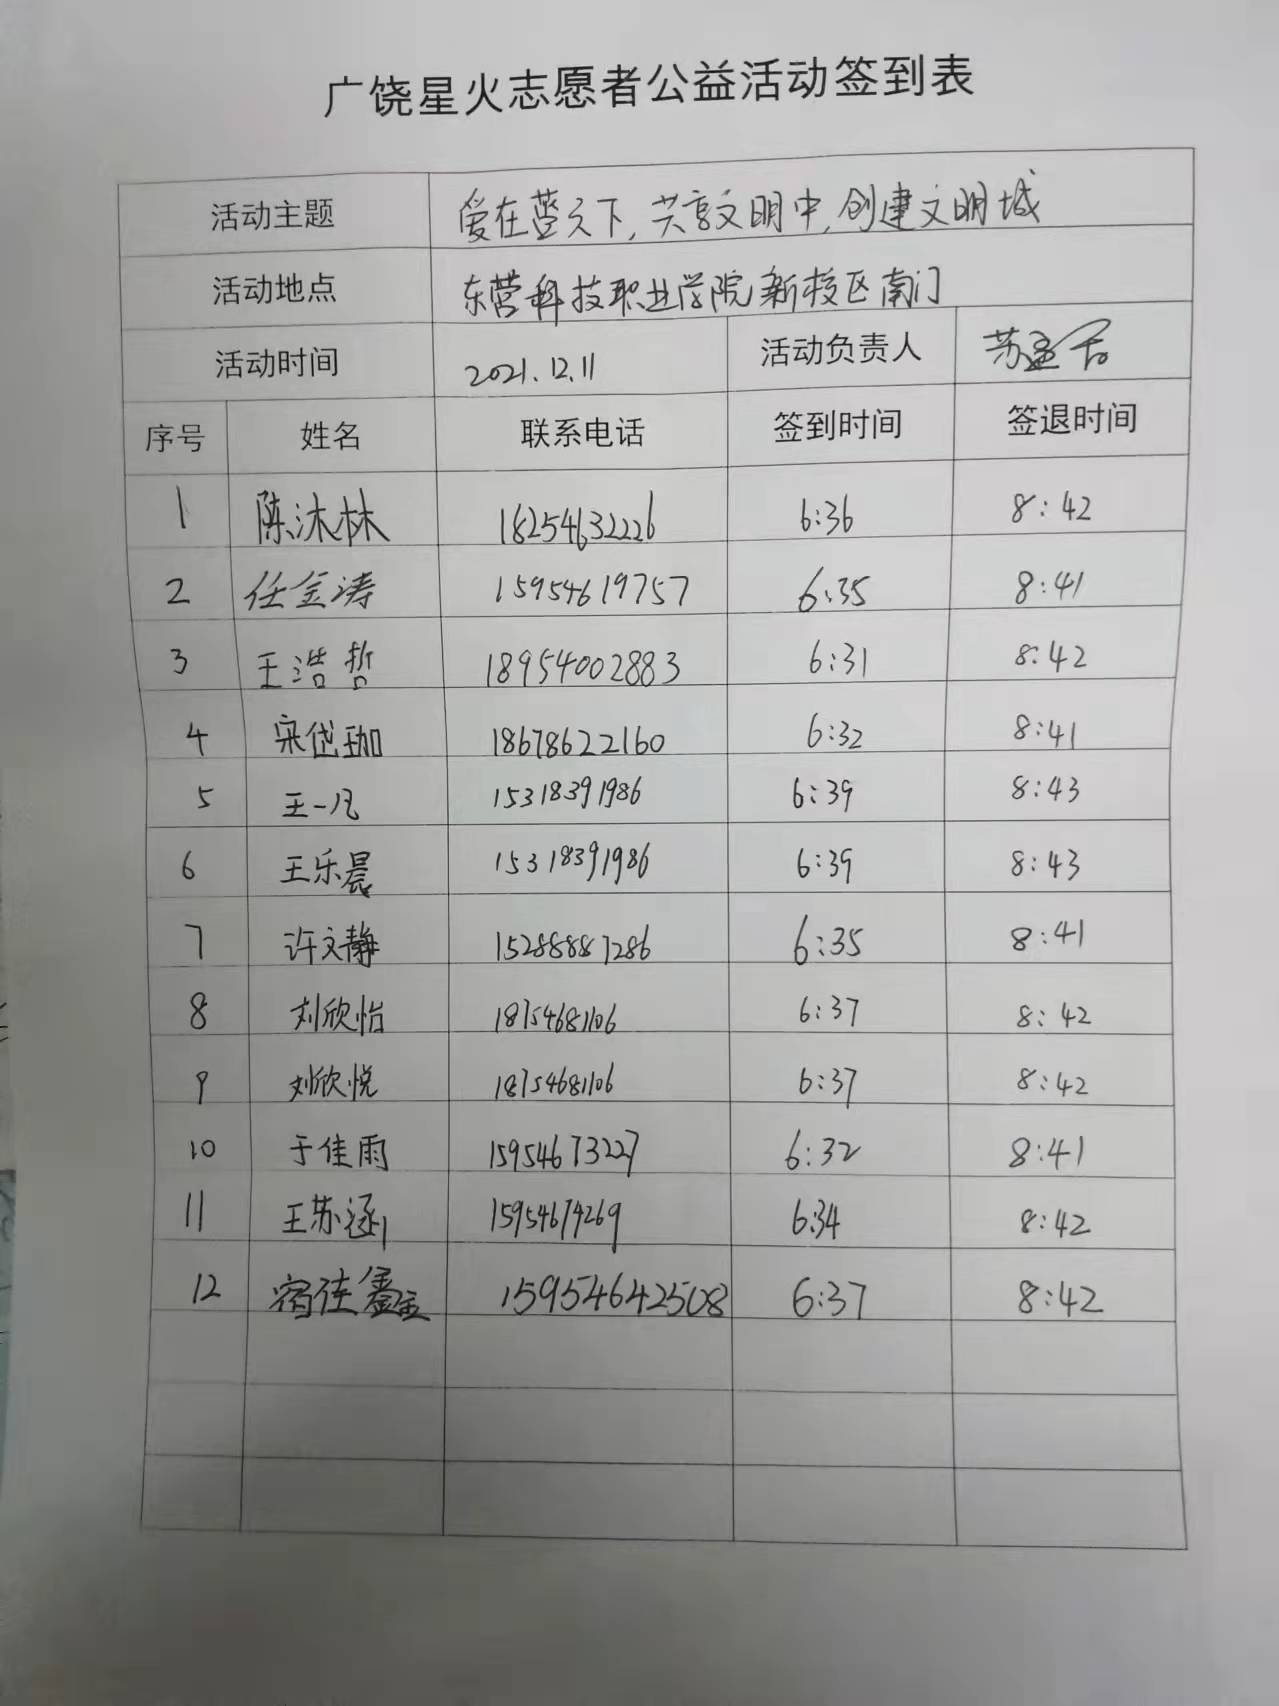 广饶星火志愿者公益活动签到表
活动主题 爱在蓝天下,共享文明中,创建文明城
活动地点 东营科技职业学院新校区南门
活动时间 2021.12.11 活动负责人 苏
序号 姓名 联系电话 签到时间 签退时间
1 陈沐林 18254632226 6:36 8:42
2 任金涛 15954619757 6:35 8:41
3 王浩哲 18954002883 6:31 8:42
4 宋岱珈 18678622160 6:32 8:41
5 王一凡 15318391986 6:39 8:43
6 王乐晨 15318391986 6:39 8:43
7 许文静 15288887286 6:35 8:41
8 刘欣怡 18754681106 6:37 8:42
9 刘欣悦 18754681106 6:37 8:42
10 于佳雨 15954673227 6:32 8:41
11 王苏涵 15954674269 6:34 8:42
12 宿佳鑫 15954642508 6:37 8:42